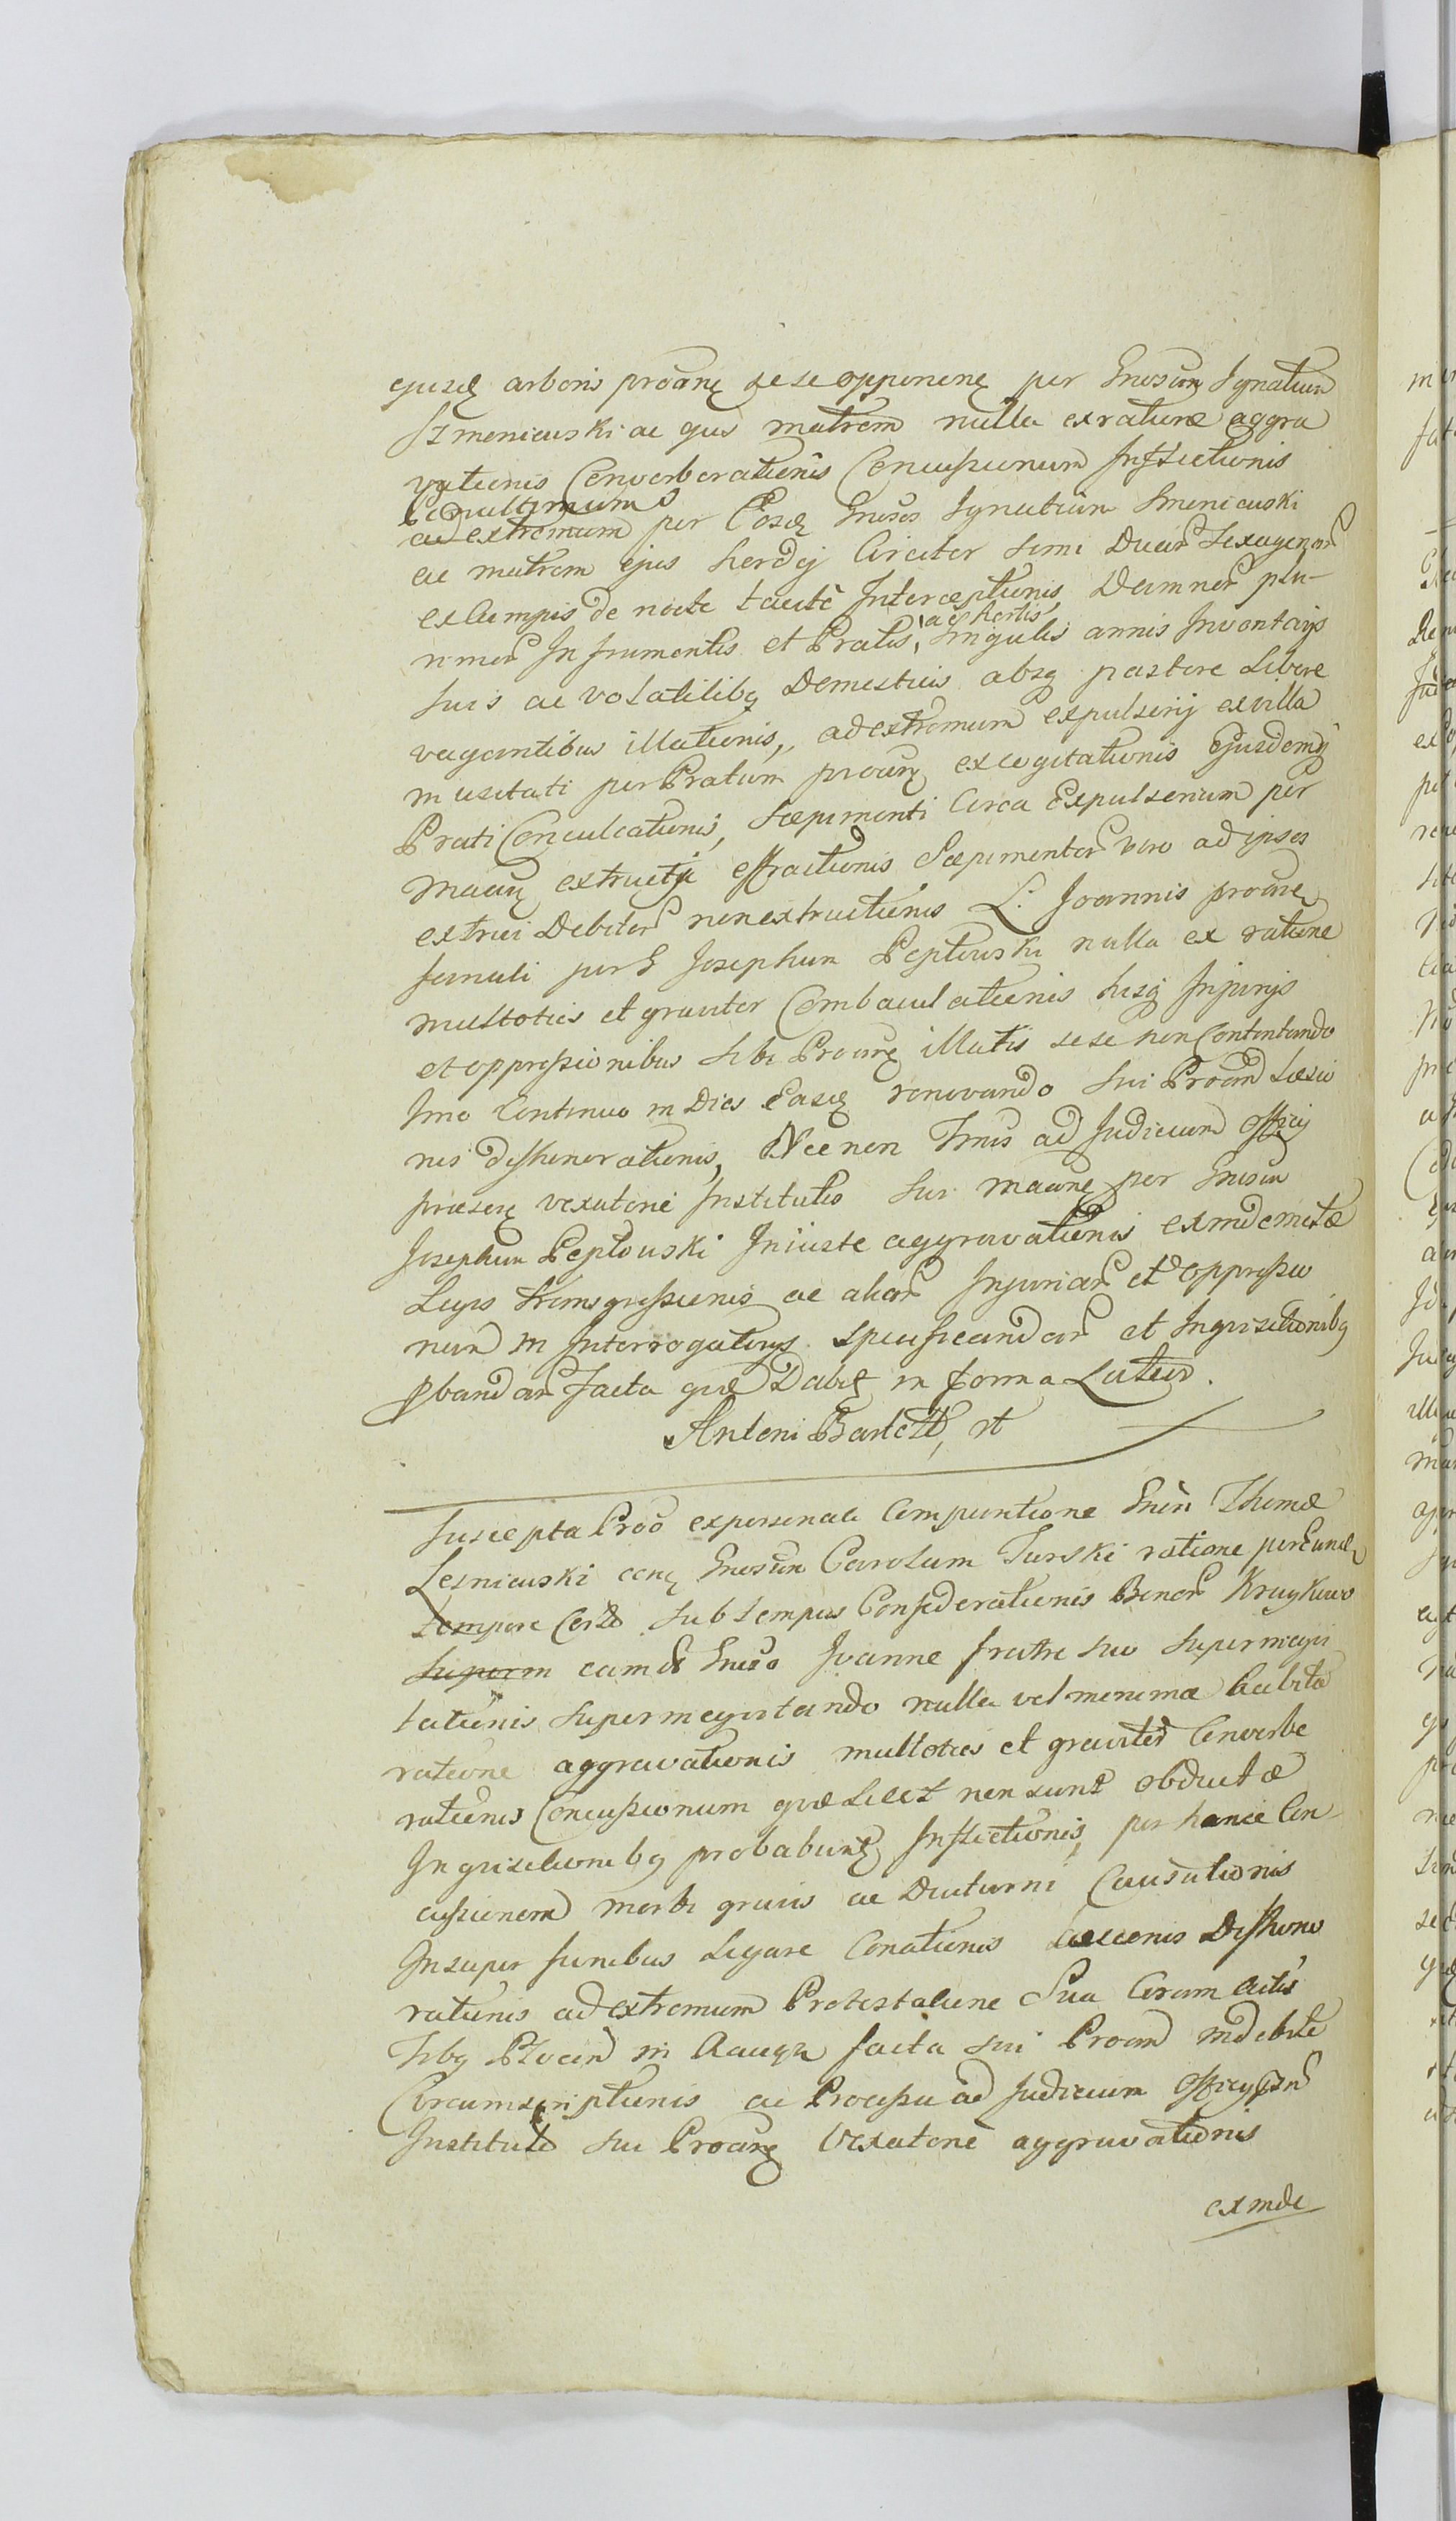 ejusd arboris proane sese opponene per Gnosum Ignatium
Szmeniewski ac ejus matrem nulla ex ratione aggra
vationis Converberationis Concussionum Inflictionis
Penultimum
ad extremum per Eosd Gnosos Ignatium Smieniewski
ac matrem ejus hordej Circiter semi Duar Sexagenar
ex Campis de nocte tacite Interceptionis Damnor plu-
rimor In frumentis et Pratis, ac hortis singulis annis Inventarijs
suis ac volatilibq Domesticis absq pastore Libere
vagantibus illationis, ad extremum expulsorij ex villa
in usitati per Pratum proane excogitationis Ejusdemq
Prati Conculcationis, Sæpimenti Circa Expulsorium per
maane extructi effractionis Sæpimentor vero ad ipsos
extrui Debitor non extructionis L. Joannis proane
famuli per G Josephum Peptowski nulla ex ratione
multoties et graviter Combaculationis hisq Injurijs
et oppressionibus sibi Proane illatis sese non Contentando
Imo Continuo in Dies Easd renovando sui Proan Læsio
nis dishonorationis, Nec non Imis ad Judicium Officij
præsene vexatorie Instituto sui maane per Gnosum
Josephum Peptowski Iniuste aggravationis exinde mutæ
Legis transgressionis ac aliar Injuriar et oppressio
num in Interrogatorijs specificandar et Inquisitionibq
pbandar facta quæ Dabit in forma Latior.
Antoni Bartold, rt
Suscepta Proo ex personali Comparitione Gnen Thomæ
Lesniewski cene Gnosum Carolum Turski ratione per Eund
tempore Certo sub tempus Confederationis Bonor Kruykowo
superm eam et Gnoso Joanne fratre suo supermegi
tationis supermegitando nulla vel minima habita
ratione aggravationis multoties et graviter Converbe
rationis Concussionum quæ Licet non sunt obductæ
Inquisitionibq probabunt Inflictionis, per hance Con-
cussionem morbi gravis ac Diuturni Causationis
Insuper funibus Ligare Conationis Læsionis Dishono
rationis ad extremum Protestatione Sua Coram Actis
Tibq Plocen in Raciąż facta sui Proam indebite
Circumscriptionis ac Processu ad Judicium Officij Psn
Instituto sui Proane Vexatorie aggravationis
exinde